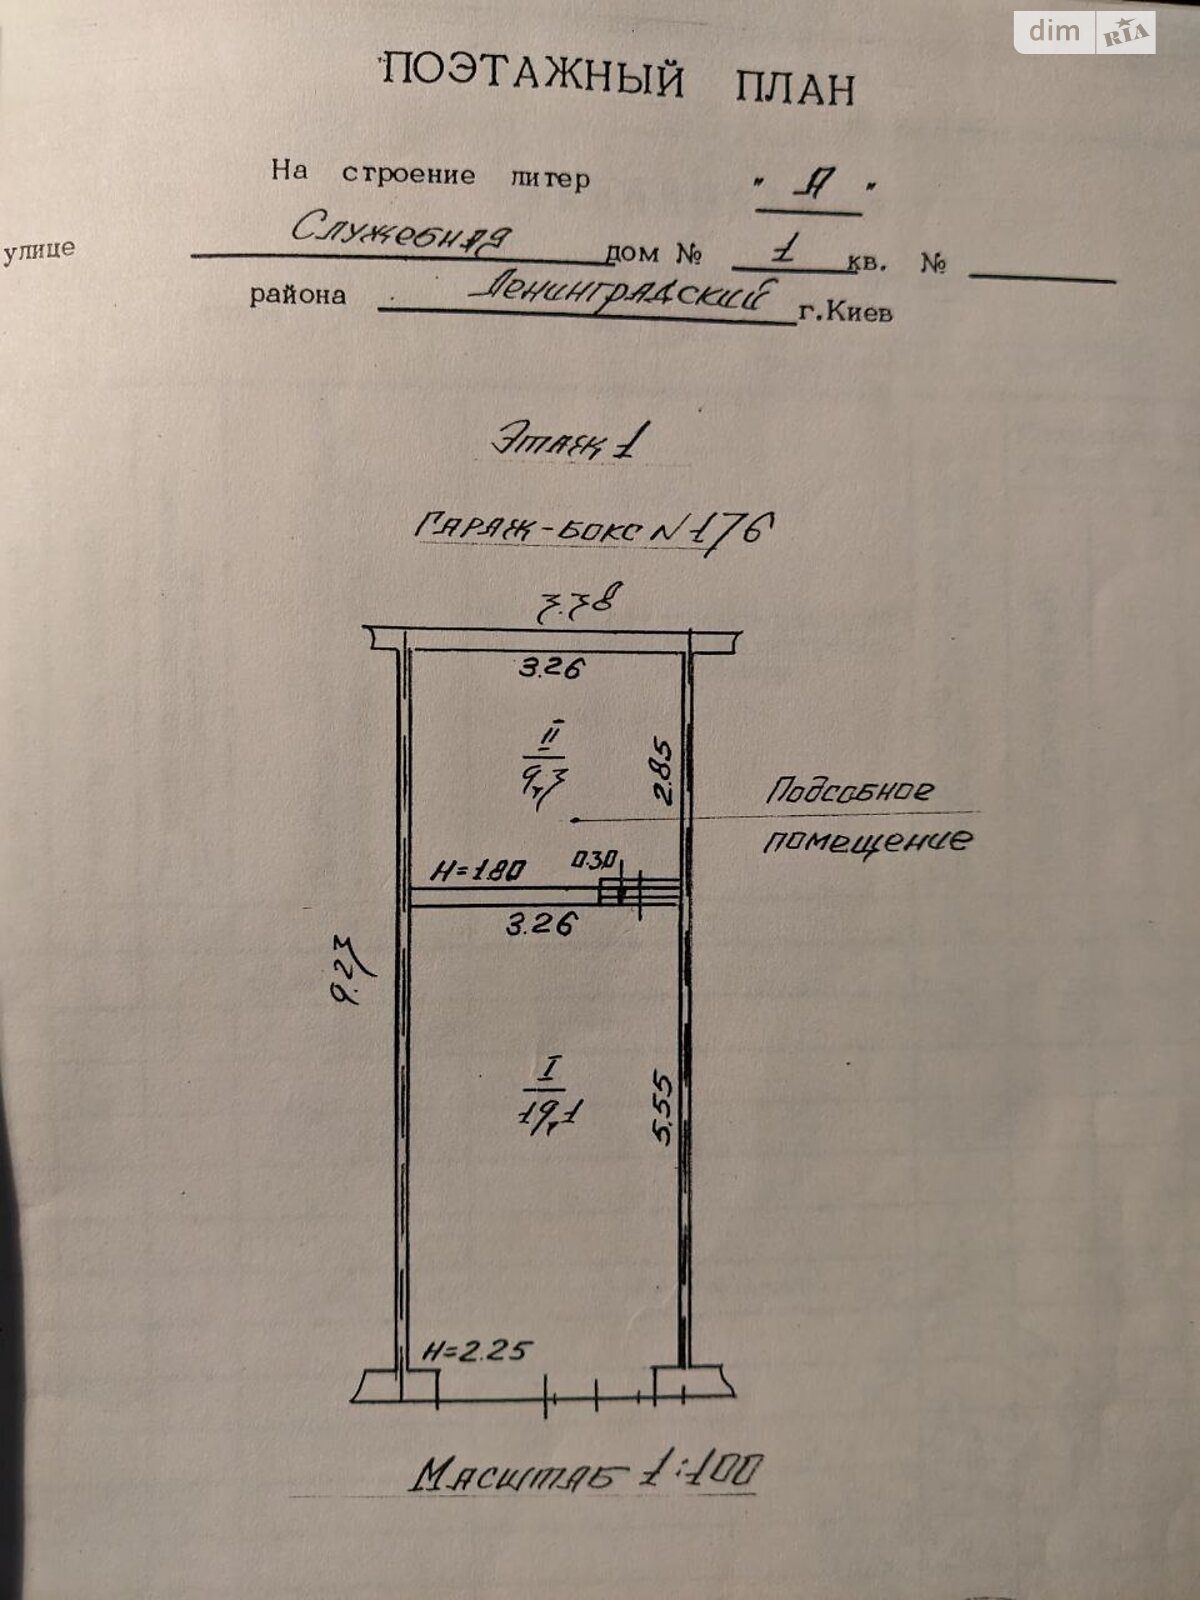 dim RIA
ПОЭТАЖНЫЙ ПЛАН
На строение литер "А"
улице Служебная дом № 1 кв. №
района Ленинградский г.Киев
Этаж 1
Гараж-бокс N 176
3.38
3.26
II
9,3
2.85
Подсобное
помещение
H=1.80
0.30
3.26
9.23
I
19,1
5.55
H=2.25
Масштаб 1:100